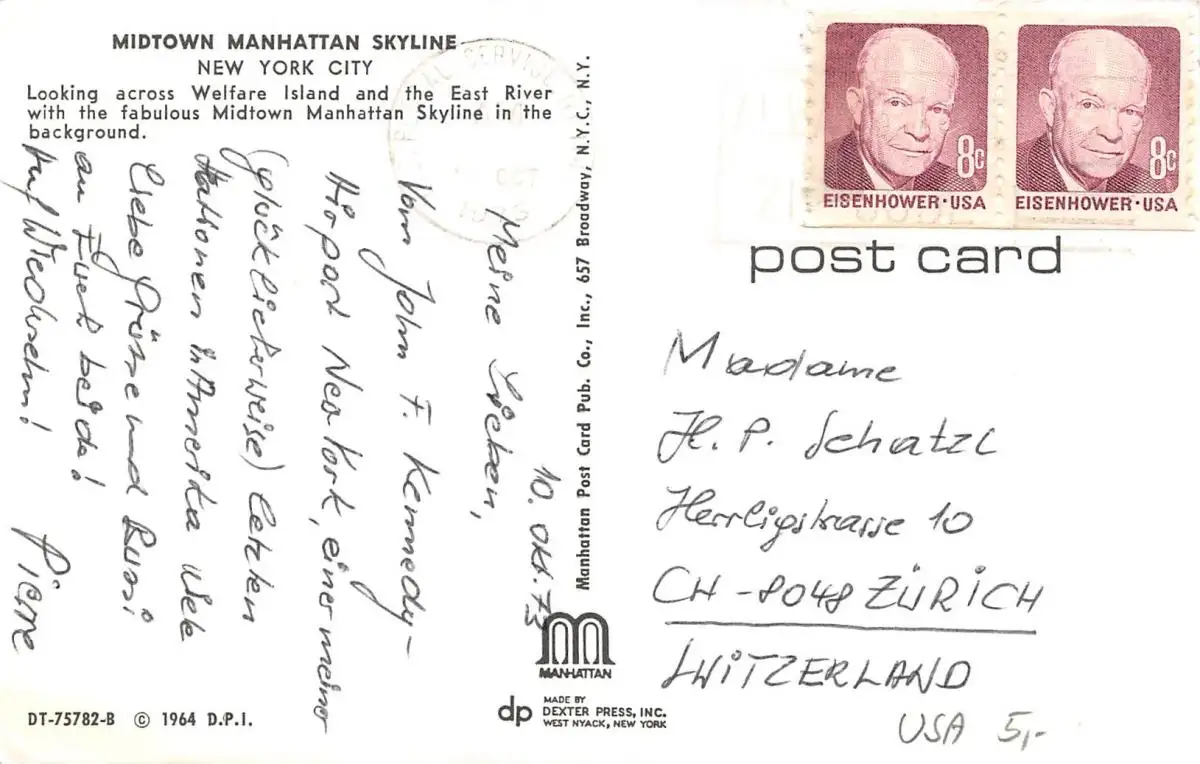 MIDTOWN MANHATTAN SKYLINE
NEW YORK CITY
Looking across Welfare Island and the East River
with the fabulous Midtown Manhattan Skyline in the
background.
10. Okt. 73
Meine Lieben,
Vom John F. Kennedy-
Airport New York, einer meiner
(glücklicherweise) letzten
Stationen in Amerika viele
Liebe Grüsse und Bussi
an Euch beide!
Auf Wiedersehn!
Pierre
DT-75782-B © 1964 D.P.I.
Manhattan Post Card Pub. Co., Inc., 657 Broadway, N.Y.C., N.Y.
MANHATTAN
dp MADE BY
DEXTER PRESS, INC.
WEST NYACK, NEW YORK
8c
EISENHOWER·USA
8c
EISENHOWER·USA
post card
Madame
H. P. Schatzl
Herrligstrasse 10
CH-8048 ZÜRICH
SWITZERLAND
USA 5,-